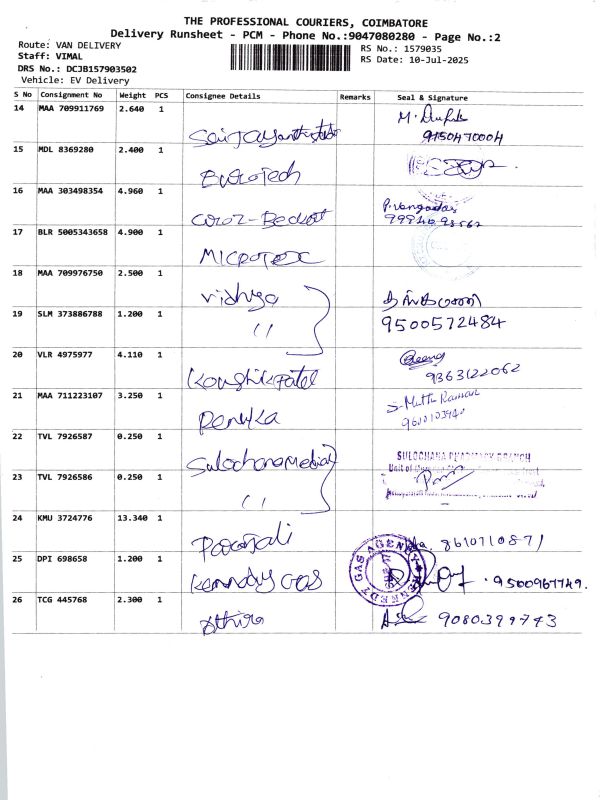 THE PROFESSIONAL COURIERS, COIMBATORE
Delivery Runsheet - PCM - Phone No.:9047080280 - Page No.:2
Route: VAN DELIVERY
RS No.: 1579035
Staff: VIMAL
RS Date: 10-Jul-2025
DRS No.: DCJB157903502
Vehicle: EV Delivery
S No Consignment No Weight PCS Consignee Details Remarks Seal & Signature
14 MAA 709911769 2.640 1 M.
9150470004
15 MDL 8369280 2.400 1
EuroTech
16 MAA 303498354 4.960 1 P.rengadas
17 BLR 5005343658 4.900 1
Microtex
18 MAA 709976750 2.500 1
Vidhya
19 SLM 373886788 1.200 1
〃 9500572484
20 VLR 4975977 4.110 1
Koushik Patel 9363122062
21 MAA 711223107 3.250 1 S. Muthu Raman
Renuka
22 TVL 7926587 0.250 1
Sulochana Medical SULOCHANA PHARMACY BRANCH
23 TVL 7926586 0.250 1
〃
24 KMU 3724776 13.340 1
8610710871
25 DPI 698658 1.200 1 KENNEDY GAS AGENCY
Kennady Gas 9500967749.
26 TCG 445768 2.300 1
Athira 9080399743